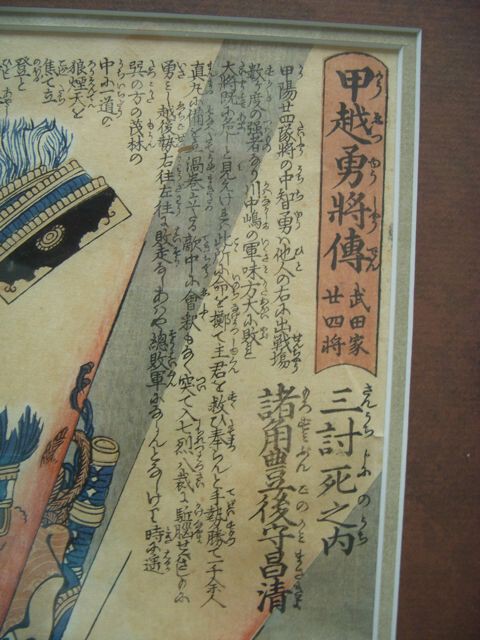 甲越勇將傳
武田家
廿四将
三討死之内
諸角豊後守昌清
甲陽廿四隊將の中智勇ハ他人の右に出戦場
数ヶ度の強者なり川中嶋の軍味方大に敗走し
大将既に危しと見えけれバ此所に命を擲て主君を救ひ奉らんと手勢勝て二千余人
真丸に備を渦巻立てる敵中に會釈もなく突て入七烈八裁に駈悩せバさしもの
勇き越後勢右往左往に敗走なしあハや總敗軍にならんとなしける時に遥
巽の方の茂林の
中に一道の
狼煙天を
焦て立
登と